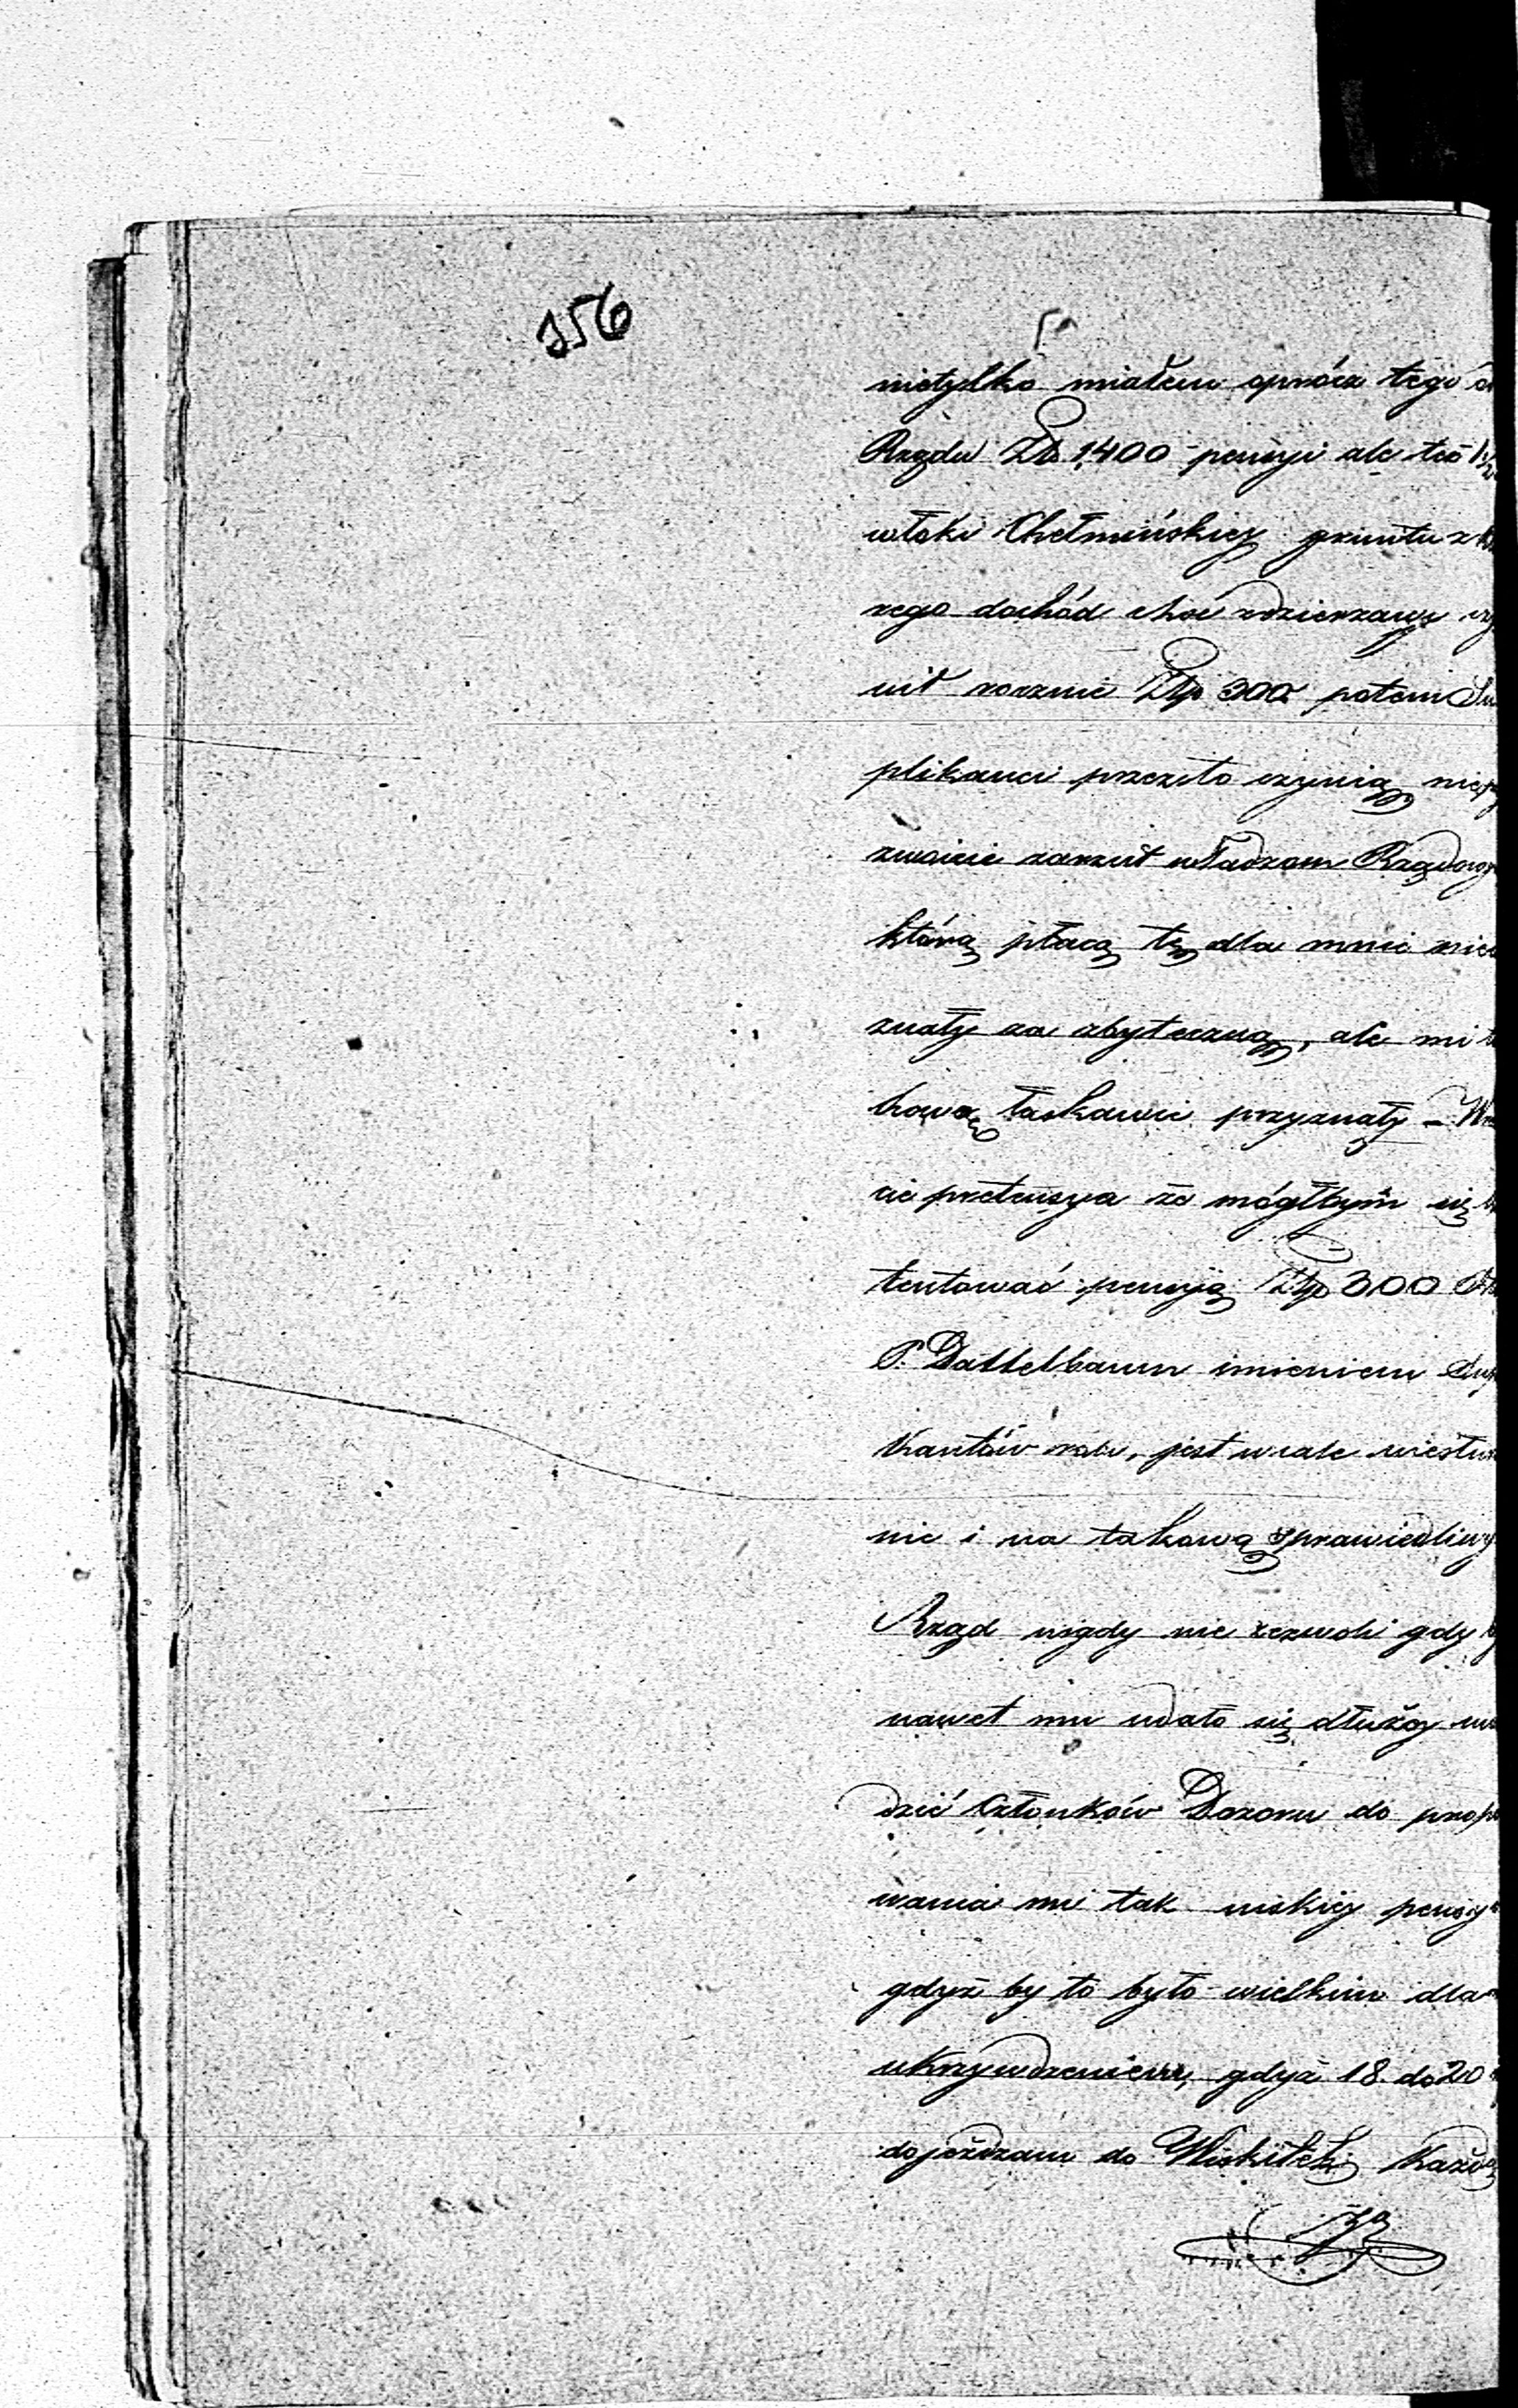 156
nietylko miałem oprócz tego
Rządu Złp 1,400 pensyi ale też 1½
włoki Chełmińskiey gruntu z
rego dochód choć zdzierzawy czy
nił rocznie Złp 300 potem Su
plikanci przezto czynią nie
zwoicie zarzut władzom Rządowy
którzy płacą tę dla mnie nie
znały za zbyteczną, ale mi
kową łaskawie przyznały –
cie pretensya że mógłbym się
tentować pensyią Złp 300
P. Dattelbaum imieniem Supl
kantów robi, jest wcale niestus
nie i na takową sprawiedliwy
Rząd nigdy nie zezwoli gdy
nawet mu udało się dłużey
dzić Członków Dozoru do prop
wania mi tak niskiey pensyi
gdyż by to było wielkim dla
ukrzywdzeniem, gdyż 18 do 20
dojeżdzam do Wiskitek